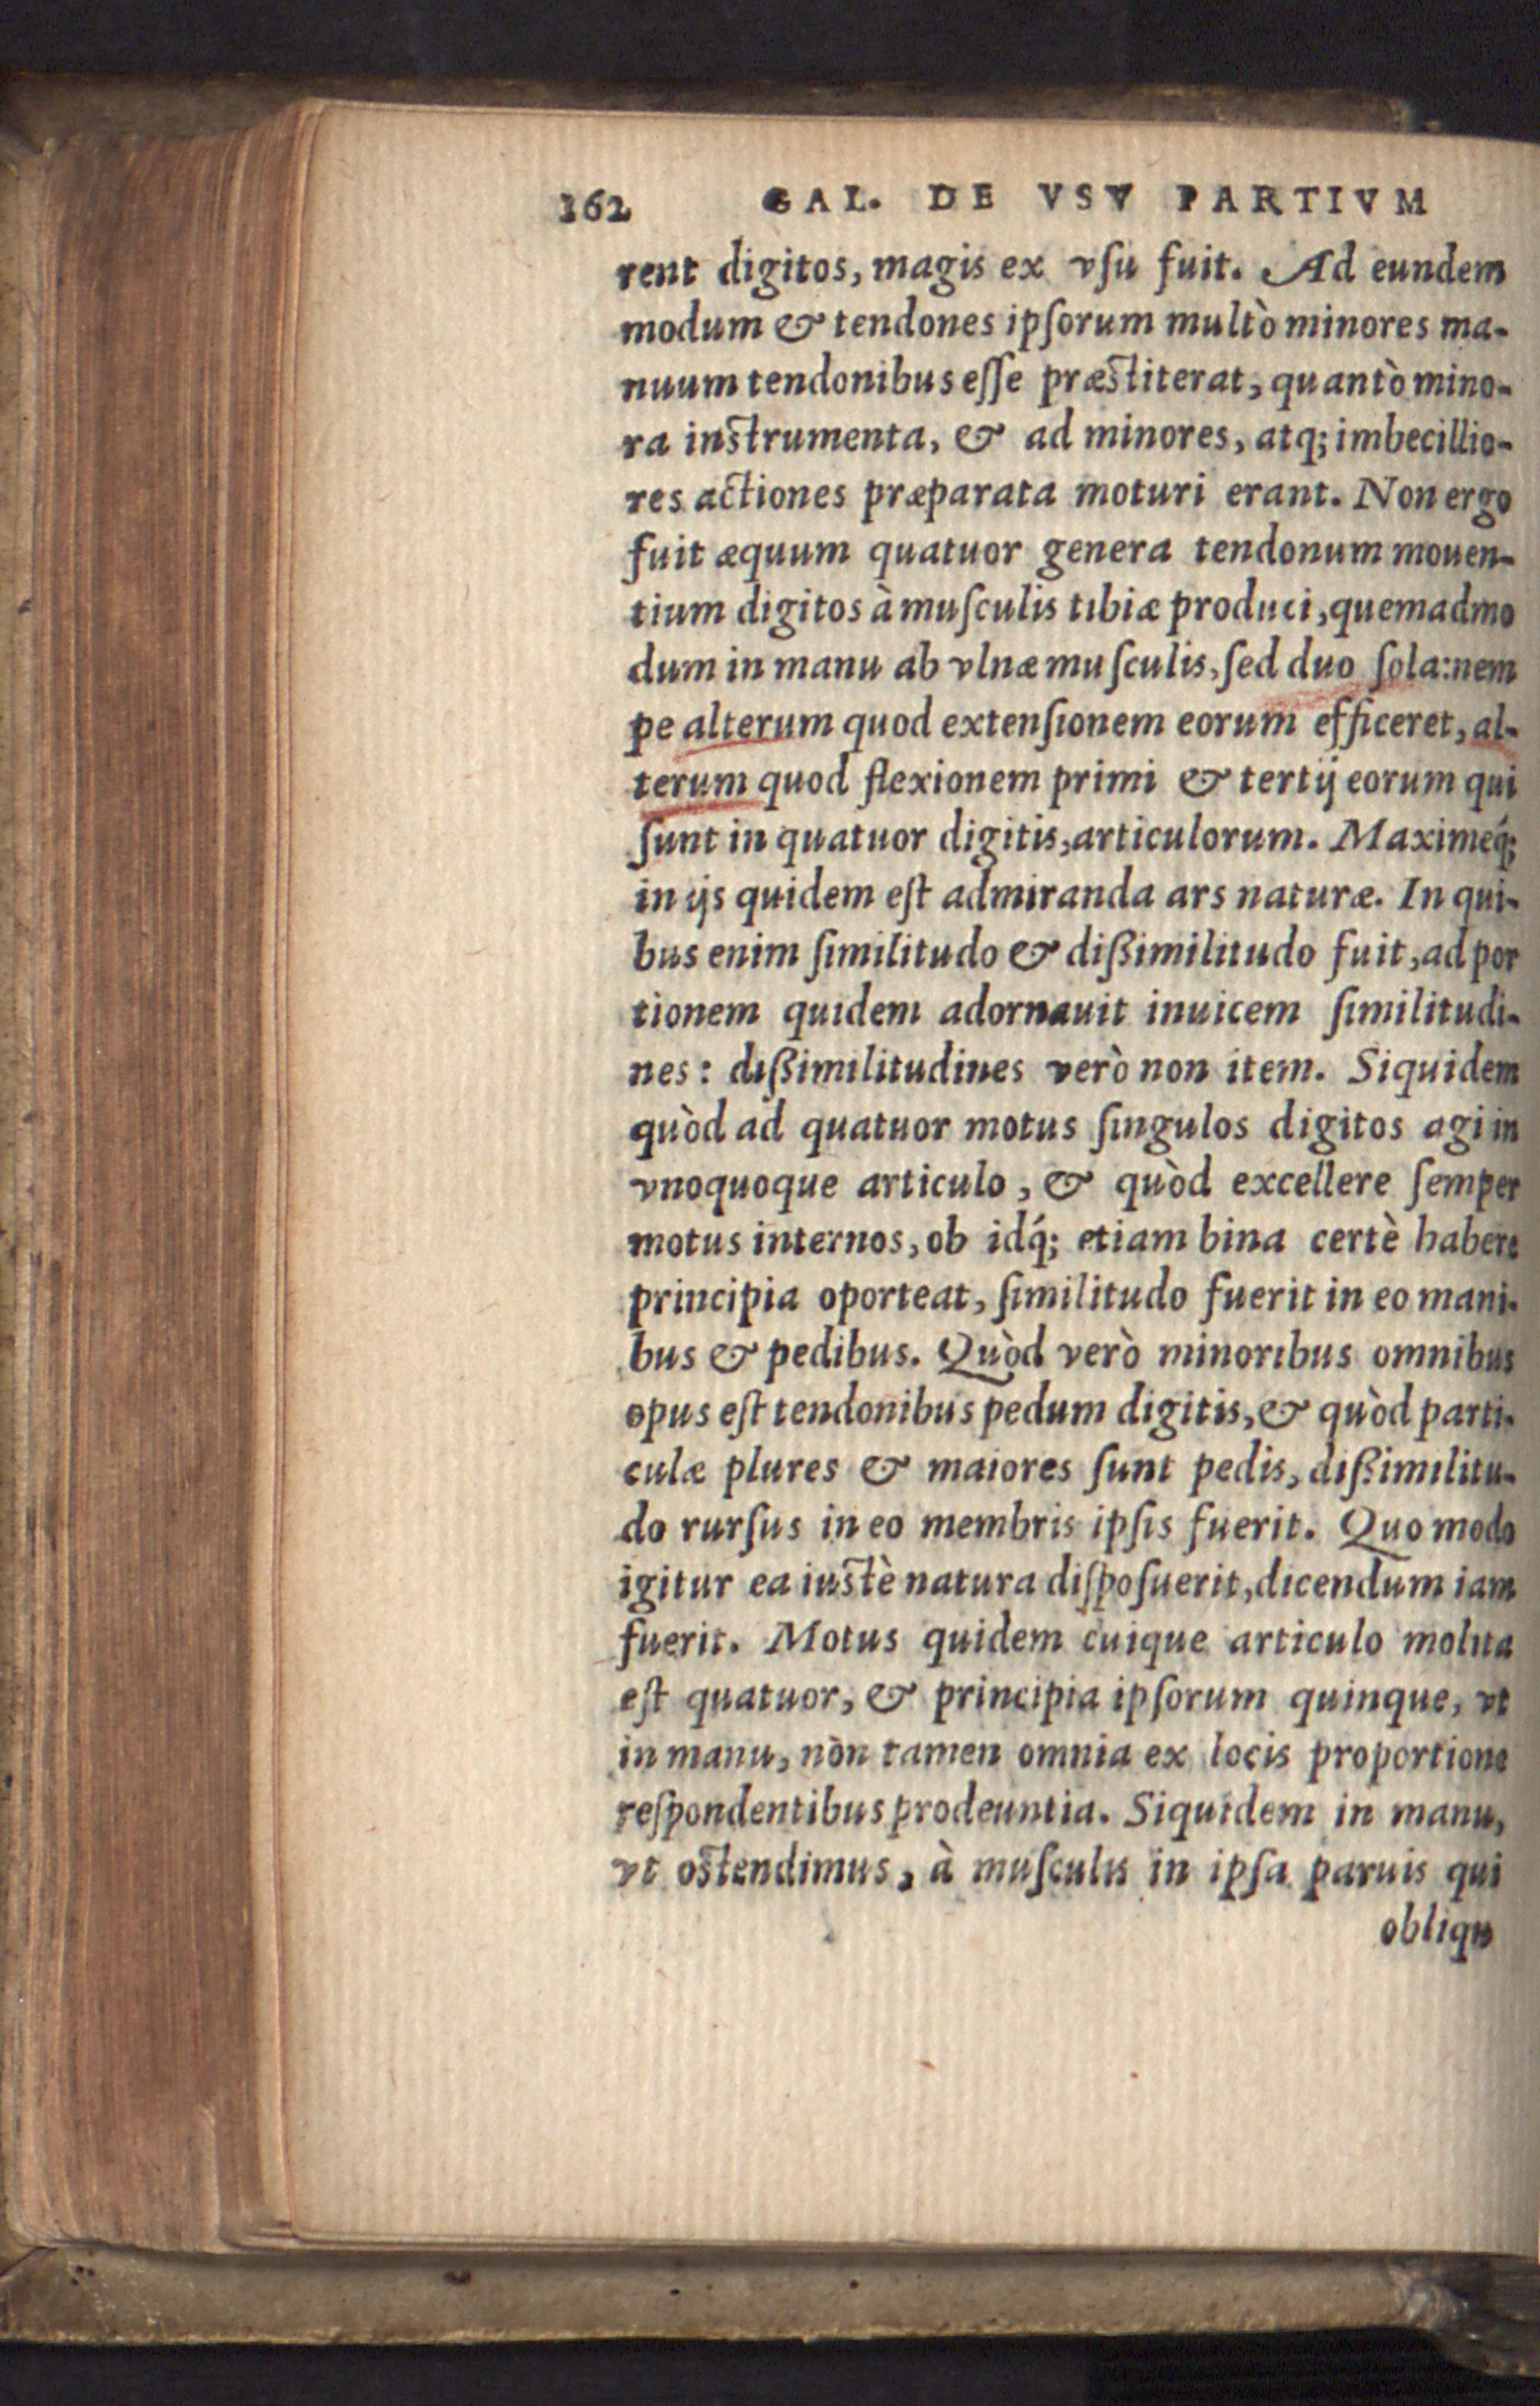 162 GAL. DE VSV PARTIVM
rent digitos, magis ex vſu fuit. Ad eundem
modum & tendones ipſorum multò minores ma-
nuum tendonibus eſſe præstiterat, quantò mino-
ra instrumenta, & ad minores, atq; imbecillio-
res actiones præparata moturi erant. Non ergo
fuit æquum quatuor genera tendonum mouen-
tium digitos à muſculis tibiæ produci, quemadmo
dum in manu ab vlnæ muſculis, ſed duo ſola: nem
pe alterum quod extenſionem eorum efficeret, al-
terum quod flexionem primi & tertij eorum qui
ſunt in quatuor digitis, articulorum. Maximeq́;
in ijs quidem eſt admiranda ars naturæ. In qui-
bus enim ſimilitudo & dißimilitudo fuit, ad por
tionem quidem adornauit inuicem ſimilitudi-
nes: dißimilitudines verò non item. Siquidem
quòd ad quatuor motus ſingulos digitos agi in
vnoquoque articulo, & quòd excellere ſemper
motus internos, ob idq́; etiam bina certè habere
principia oporteat, ſimilitudo fuerit in eo mani-
bus & pedibus. Quòd verò minoribus omnibus
opus eſt tendonibus pedum digitis, & quòd parti-
culæ plures & maiores ſunt pedis, dißimilitu-
do rurſus in eo membris ipſis fuerit. Quo modo
igitur ea iustè natura diſpoſuerit, dicendum iam
fuerit. Motus quidem cuique articulo molita
eſt quatuor, & principia ipſorum quinque, vt
in manu, non tamen omnia ex locis proportione
reſpondentibus prodeuntia. Siquidem in manu,
vt ostendimus, à muſculis in ipſa paruis qui
obliqu